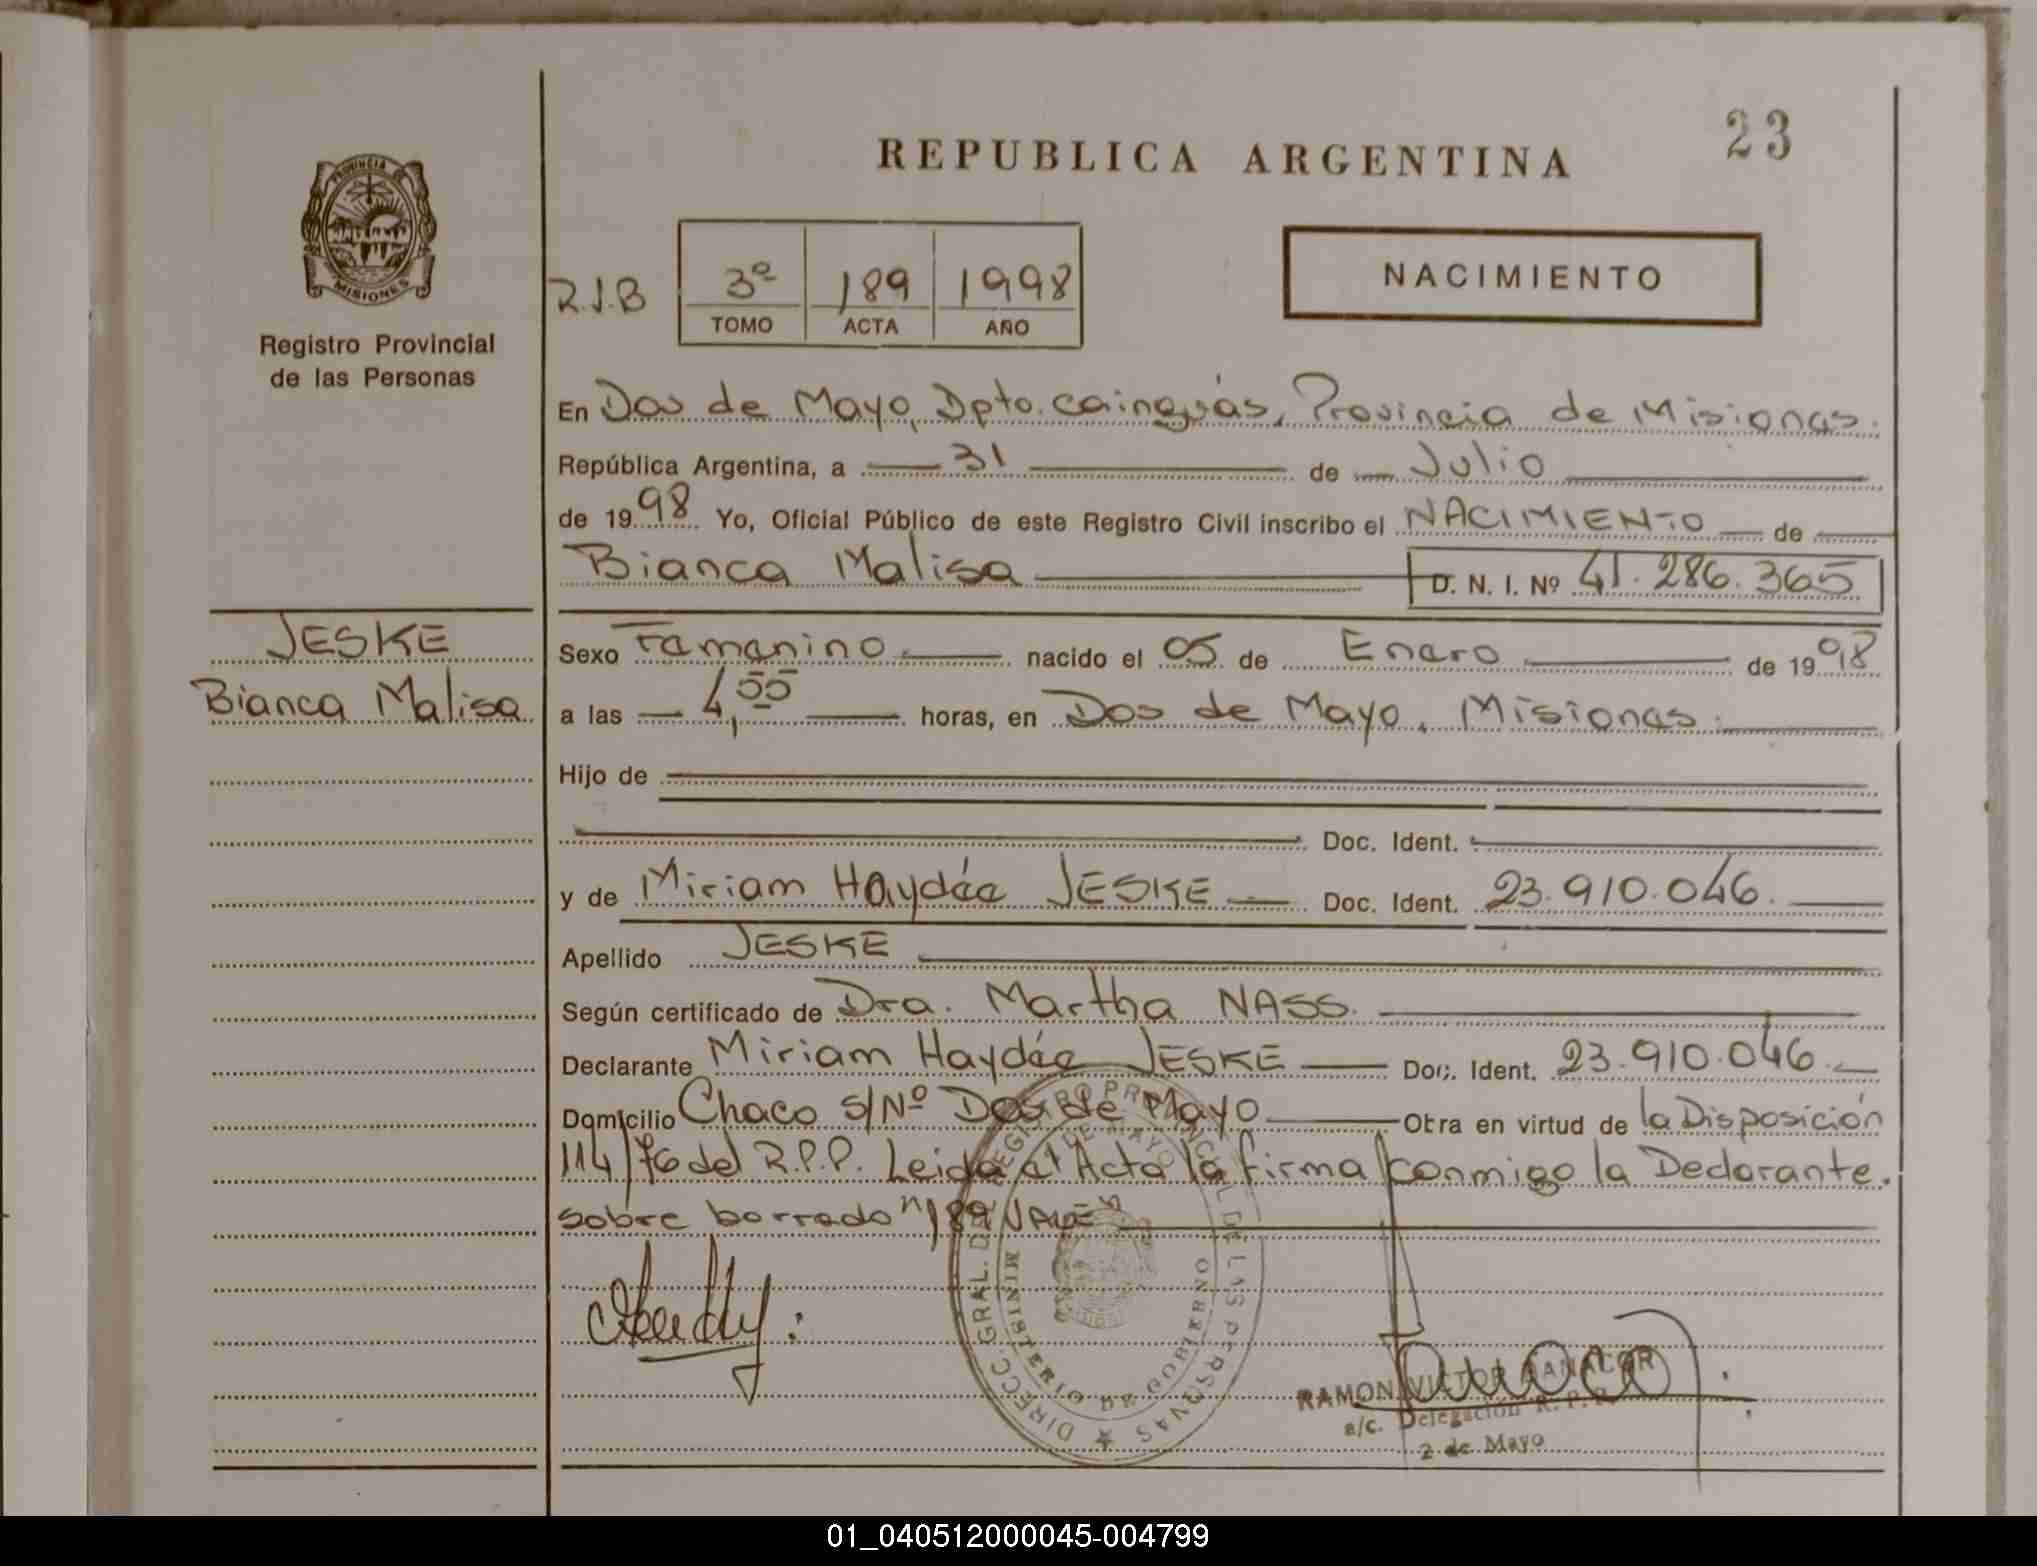 23
REPUBLICA ARGENTINA
PROVINCIA DE
MISIONES
Registro Provincial
de las Personas
R.J.B
3º 189 1998
TOMO ACTA AÑO
NACIMIENTO
En Dos de Mayo, Dpto. Cainguás, Provincia de Misiones.
República Argentina, a 31 de Julio
de 1998 Yo, Oficial Público de este Registro Civil inscribo el NACIMIENTO de
Bianca Malisa D. N. I. Nº 41.286.365
JESKE
Bianca Malisa
Sexo Femenino nacido el 05 de Enero de 1998
a las 4,55 horas, en Dos de Mayo, Misiones.
Hijo de
Doc. Ident.
y de Miriam Haydée JESKE Doc. Ident. 23.910.046.
Apellido JESKE
Según certificado de Dra. Martha NASS.
Declarante Miriam Haydée JESKE Doc. Ident. 23.910.046.
Domicilio Chaco S/Nº Dos de Mayo Obra en virtud de la Disposición
114/76 del R.P.P. Leida el Acta la firma conmigo la Declarante.
sobre borrado "189 VALE"
DIRECC. GRAL. DEL REGISTRO PROVINCIAL DE LAS PERSONAS
MINISTERIO DE GOBIERNO
DE MAYO
RAMON VICTOR
a/c. Delegación R. P. P.
2 de Mayo
01_040512000045-004799